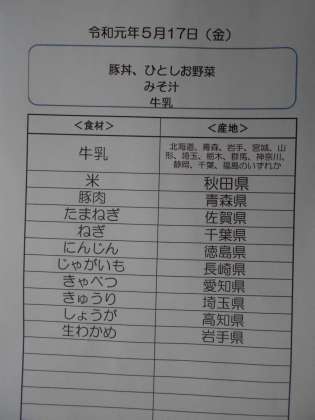 令和元年５月１７日（金）
豚丼、ひとしお野菜
みそ汁
牛乳
＜食材＞ ＜産地＞
牛乳 北海道、青森、岩手、宮城、山
形、埼玉、栃木、群馬、神奈川、
静岡、千葉、福島のいずれか
米 秋田県
豚肉 青森県
たまねぎ 佐賀県
ねぎ 千葉県
にんじん 徳島県
じゃがいも 長崎県
きゃべつ 愛知県
きゅうり 埼玉県
しょうが 高知県
生わかめ 岩手県